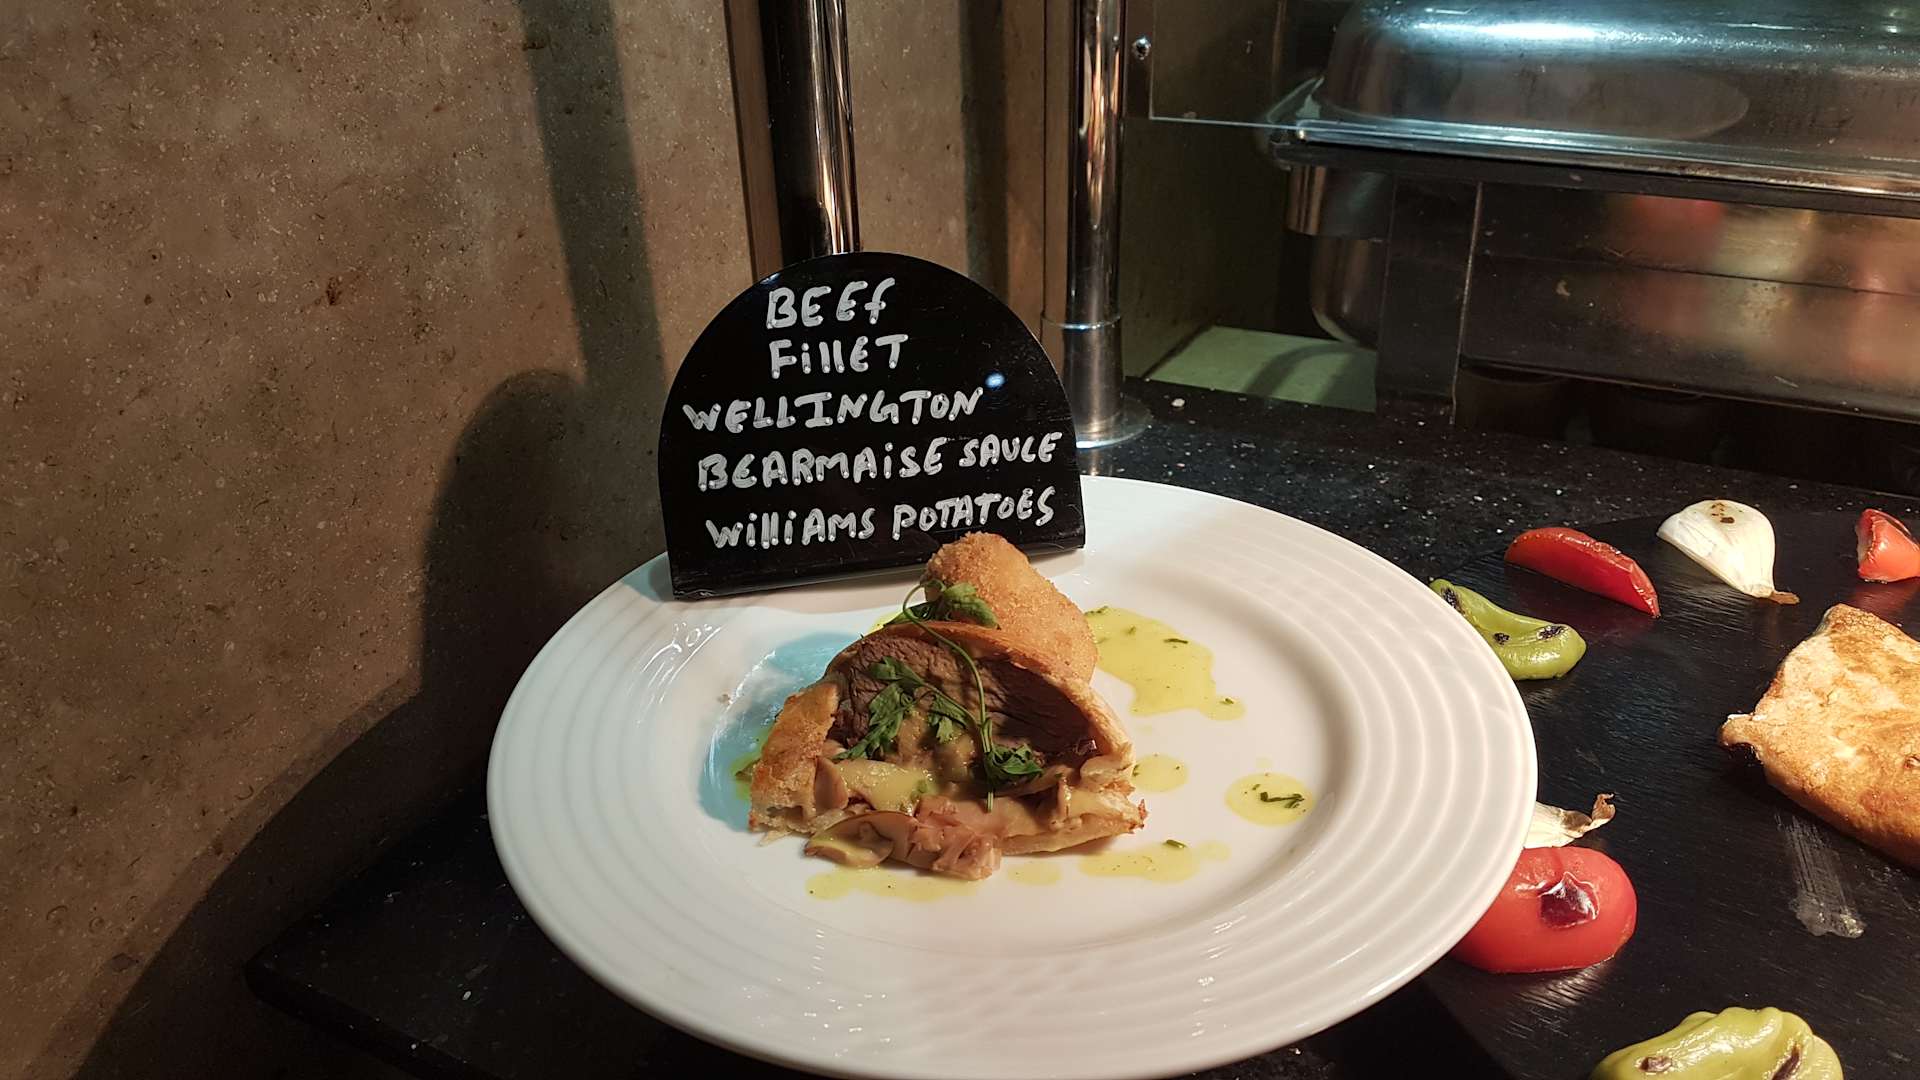 BEEf
FillET
WELLINGTON
BEARMAiSE SAUCE
WilliAMS POTATOES